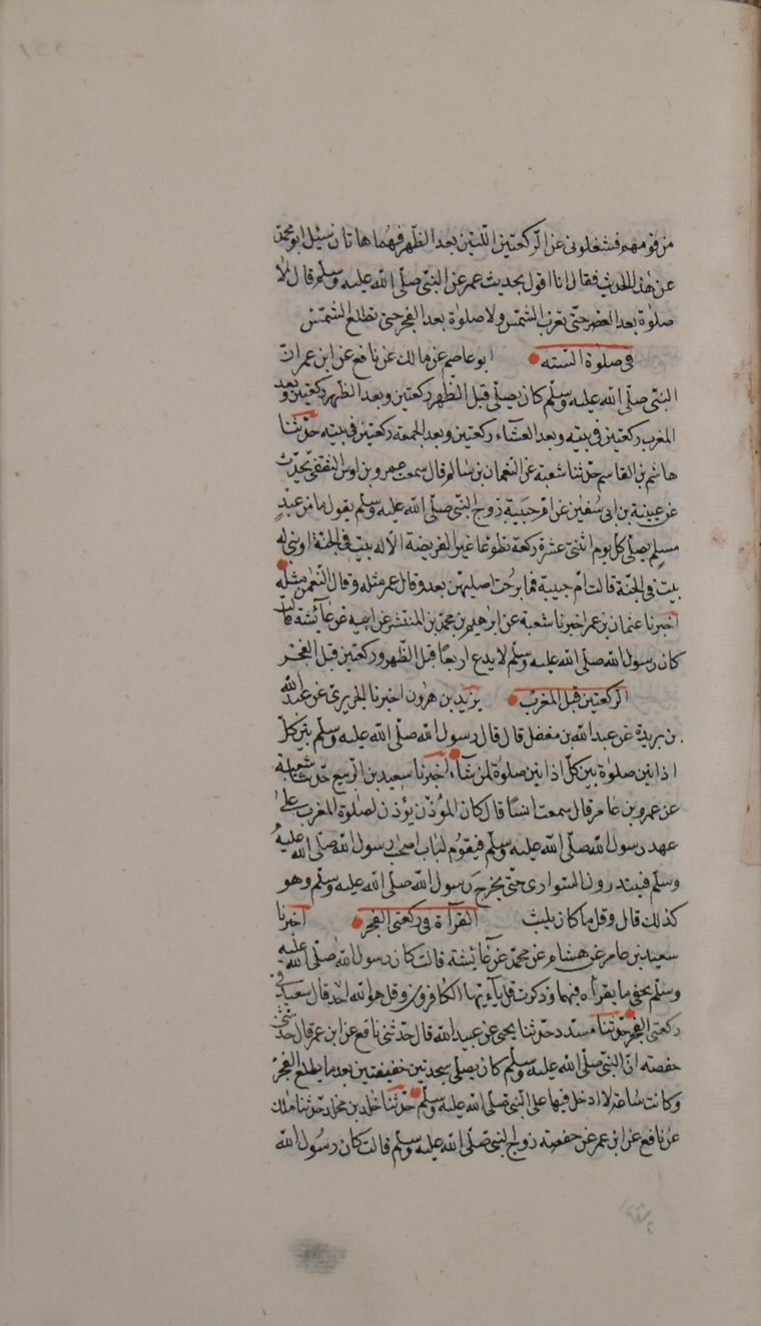 من قومهم فشغلوني عن الركعتين اللتين بعد الظهر فهما هاتان سئل ابو محمد
عن هذا الحديث فقال انا اقول بحديث عمر عن النبي صلى الله عليه وسلم قال لا
صلوة بعد العصر حتى تغرب الشمس ولا صلوة بعد الفجر حتى تطلع الشمس
في صلوة السنه ابو عاصم عن مالك عن نافع عن ابن عمر ان
النبي صلى الله عليه وسلم كان يصلي قبل الظهر ركعتين وبعد الظهر ركعتين وبعد
المغرب ركعتين في بيته وبعد العشاء ركعتين وبعد الجمعة ركعتين في بيته حدثنا
هاشم بن القاسم حدثنا شعبة عن النعمان بن سالم قال سمعت عمرو بن اوس الثقفي يحدث
عن عنبسة بن ابي سفين عن ام حبيبة زوج النبي صلى الله عليه وسلم يقول ما من عبد
مسلم يصلي كل يوم اثنتي عشرة ركعة تطوعا غير الفريضة الا له بيت في الجنة او بني له
بيت في الجنة قالت ام حبيبة فما برحت اصليهن بعد وقال عمر مثله وقال النعمن مثله
اخبرنا عثمان بن عمر اخبرنا شعبة عن ابرهيم بن محمد بن المنتشر عن ابيه عن عائشة قالت
كان رسول الله صلى الله عليه وسلم لا يدع اربعا قبل الظهر وركعتين قبل الفجر
الركعتين قبل المغرب يزيد بن هرون اخبرنا الجريري عن عبد الله
بن بريدة عن عبد الله بن مغفل قال قال رسول الله صلى الله عليه وسلم بين كل
اذانين صلوة بين كل اذانين صلوة لمن شاء اخبرنا سعيد بن الربيع حدثنا شعبة
عن عمرو بن عامر قال سمعت انسا قال كان المؤذن يؤذن لصلوة المغرب على
عهد رسول الله صلى الله عليه وسلم فيقوم لباب اصحاب رسول الله صلى الله عليه
وسلم فيبتدرون السواري حتى يخرج رسول الله صلى الله عليه وسلم وهو
كذلك قال وقل ما كان يلبث القرأة في ركعتي الفجر اخبرنا
سعيد بن عامر عن هشام عن محمد عن عائشة قالت كان رسول الله صلى الله عليه
وسلم يخفي ما يقرأه فيهما وذكرت قل يآءيها الكافرون وقل هو الله احد قال سعيد في
ركعتي الفجر حدثنا مسدد حدثنا يحيى عن عبيد الله قال حدثني نافع عن ابن عمر قال حدثتني
حفصه ان النبي صلى الله عليه وسلم كان يصلي سجدتين خفيفتين بعد ما يطلع الفجر
وكانت ساعة لا ادخل فيها على النبي صلى الله عليه وسلم حدثنا خلد بن مخلد حدثنا ملك
عن نافع عن ابن عمر عن حفصه زوج النبي صلى الله عليه وسلم قالت كان رسول الله